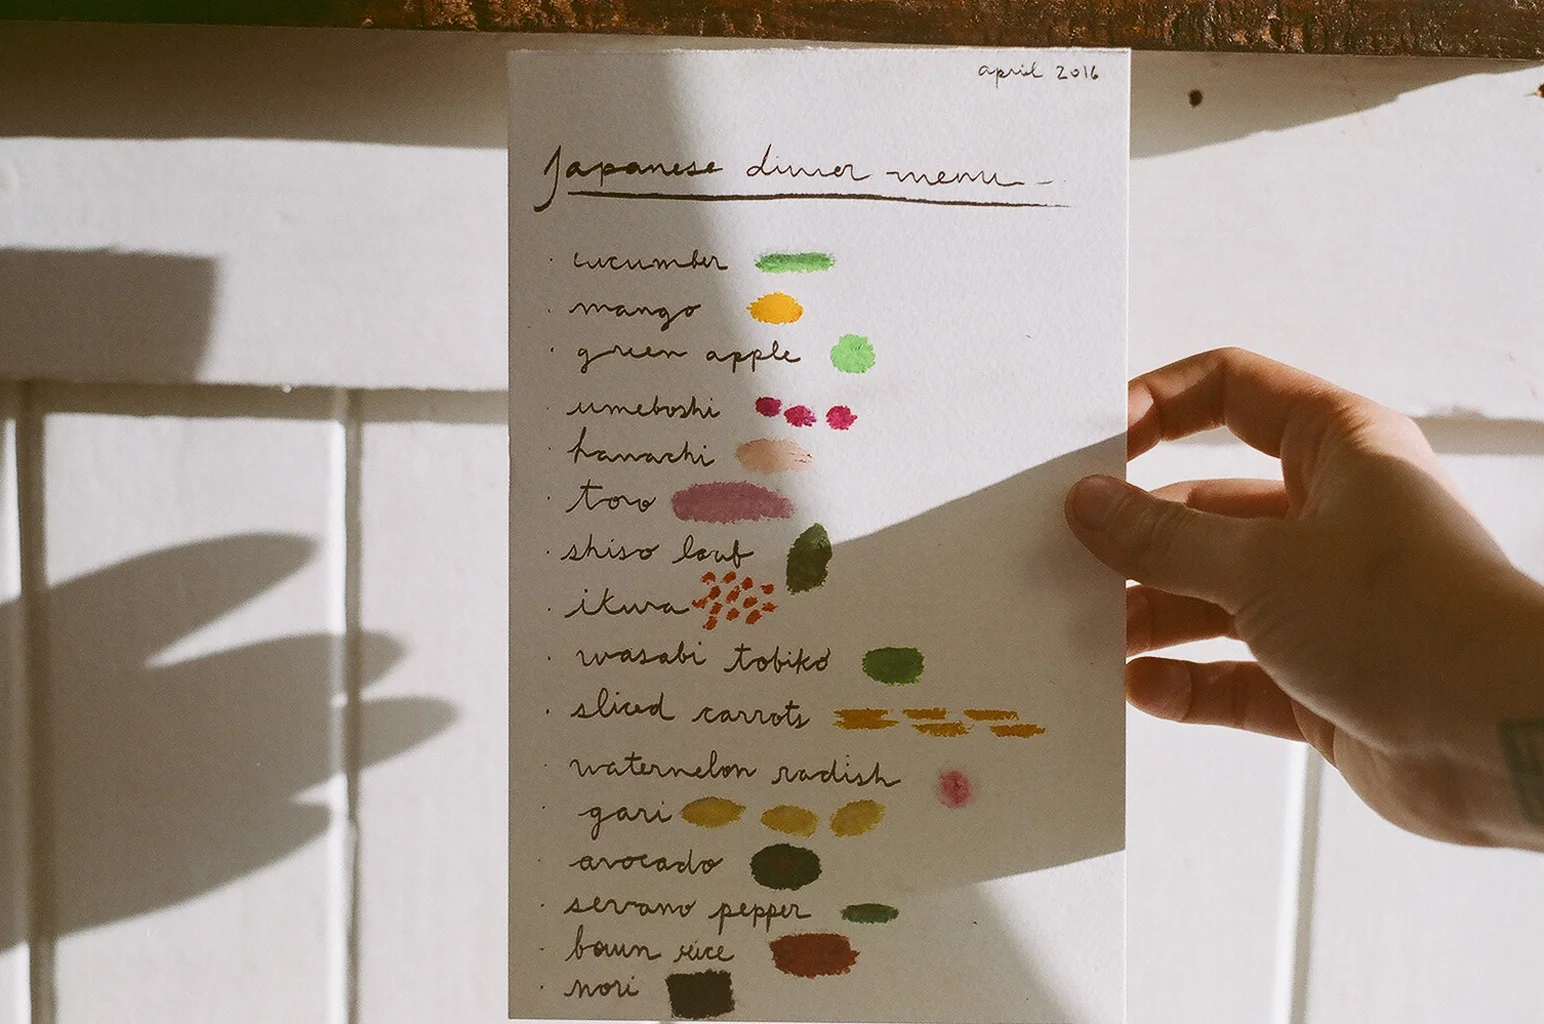 april 2016
Japanese dinner menu -
· cucumber
· mango
· green apple
· umeboshi
· hamachi
· toro
· shiso leaf
· ikura
· wasabi tobiko
· sliced carrots
· watermelon radish
· gari
· avocado
· serrano pepper
· brown rice
· nori